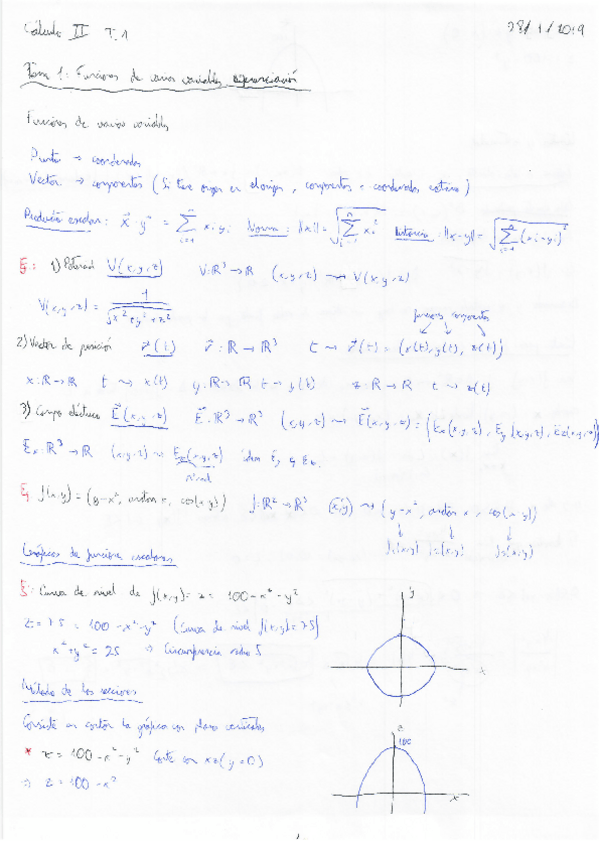 Cálculo II T.1 28/1/2019
Tema 1: Funciones de varias variables diferenciación
Funciones de varias variables
Punto → coordenadas
Vector → componentes (Si tiene origen en el origen, componentes = coordenadas
Producto escalar: x⃗ · y⃗ = ∑ᵢ₌₁ⁿ xᵢ yᵢ Norma: ||x|| = √(∑ᵢ₌₁ⁿ xᵢ²) Distancia: ||x-y|| = √(∑ᵢ₌₁ⁿ (xᵢ-yᵢ)²)
Ej: 1) Potencial V(x,y,z) V: ℝ³→ℝ (x,y,z) ⇝ V(x,y,z)
V(x,y,z) = 1/√(x²+y²+z²)
funciones componentes
2) Vector de posición r⃗(t) r⃗: ℝ → ℝ³ t ⇝ r⃗(t) = (x(t), y(t), z(t))
x: ℝ→ℝ t ⇝ x(t) y: ℝ→ℝ t ⇝ y(t) z: ℝ→ℝ t ⇝ z(t)
3) Campo eléctrico E⃗(x,y,z) E⃗: ℝ³→ℝ³ (x,y,z) ⇝ E⃗(x,y,z) = (Ex(x,y,z), Ey(x,y,z), Ez(x,y,z))
Ex: ℝ³→ℝ (x,y,z) ⇝ Ex(x,y,z) idem Ey y Ez.
Ej f(x,y) = (y-x², arctan x, cos(x·y)) f: ℝ²→ℝ³ (x,y) ⇝ (y-x², arctan x, cos(x·y))
f₁(x,y) f₂(x,y) f₃(x,y)
Gráficas de funciones escalares
Ej: Curva de nivel de f(x,y) = z = 100-x²-y²
z = 75 = 100-x²-y² (Curva de nivel f(x,y)=75)
x²+y² = 25 → Circunferencia radio 5
y
x
Método de las secciones
Consiste en cortar la gráfica con planos verticales
* z = 100-x²-y² Corte con xz (y=0)
⇒ z = 100-x²
z
100
x